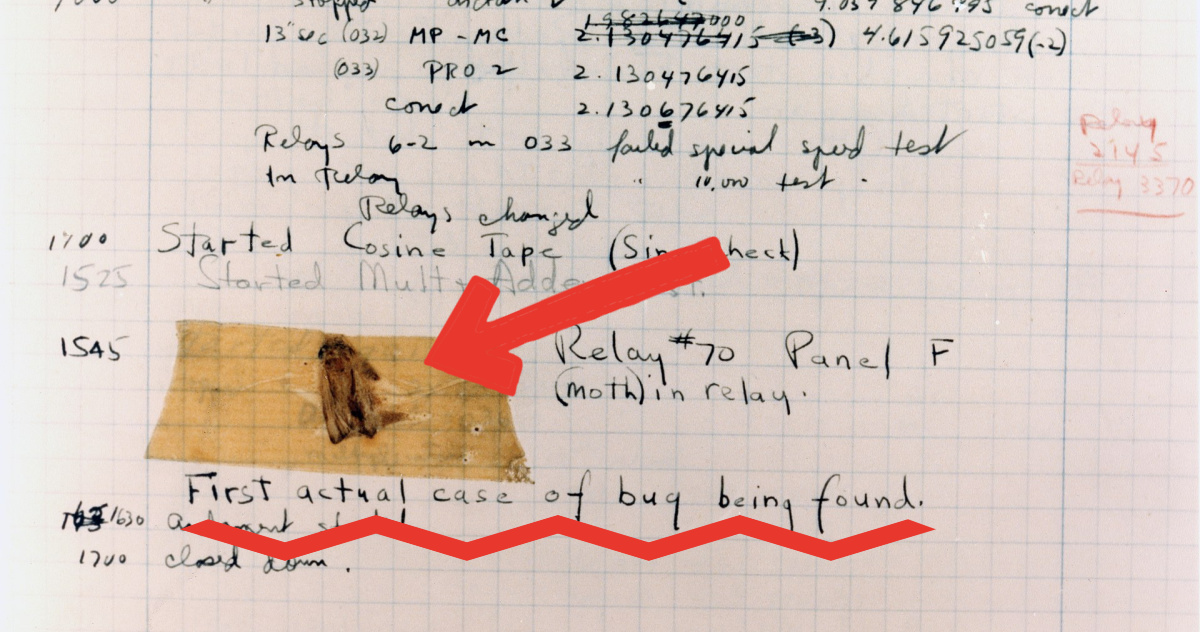 13" sec (032) MP - MC 2.130476415 (-3) 4.615925059(-2)
(033) PRO 2 2.130476415
conect 2.130676415
Relays 6-2 in 033 failed special speed test
In Relay " 10,000 test .
Relays changed
Relay
2145
Relay 3370
1700 Started Cosine Tape (Sine check)
1525 Started Mult + Adder Test.
1545 Relay #70 Panel F
(moth) in relay.
First actual case of bug being found.
1630 antangent started
1700 closed down.